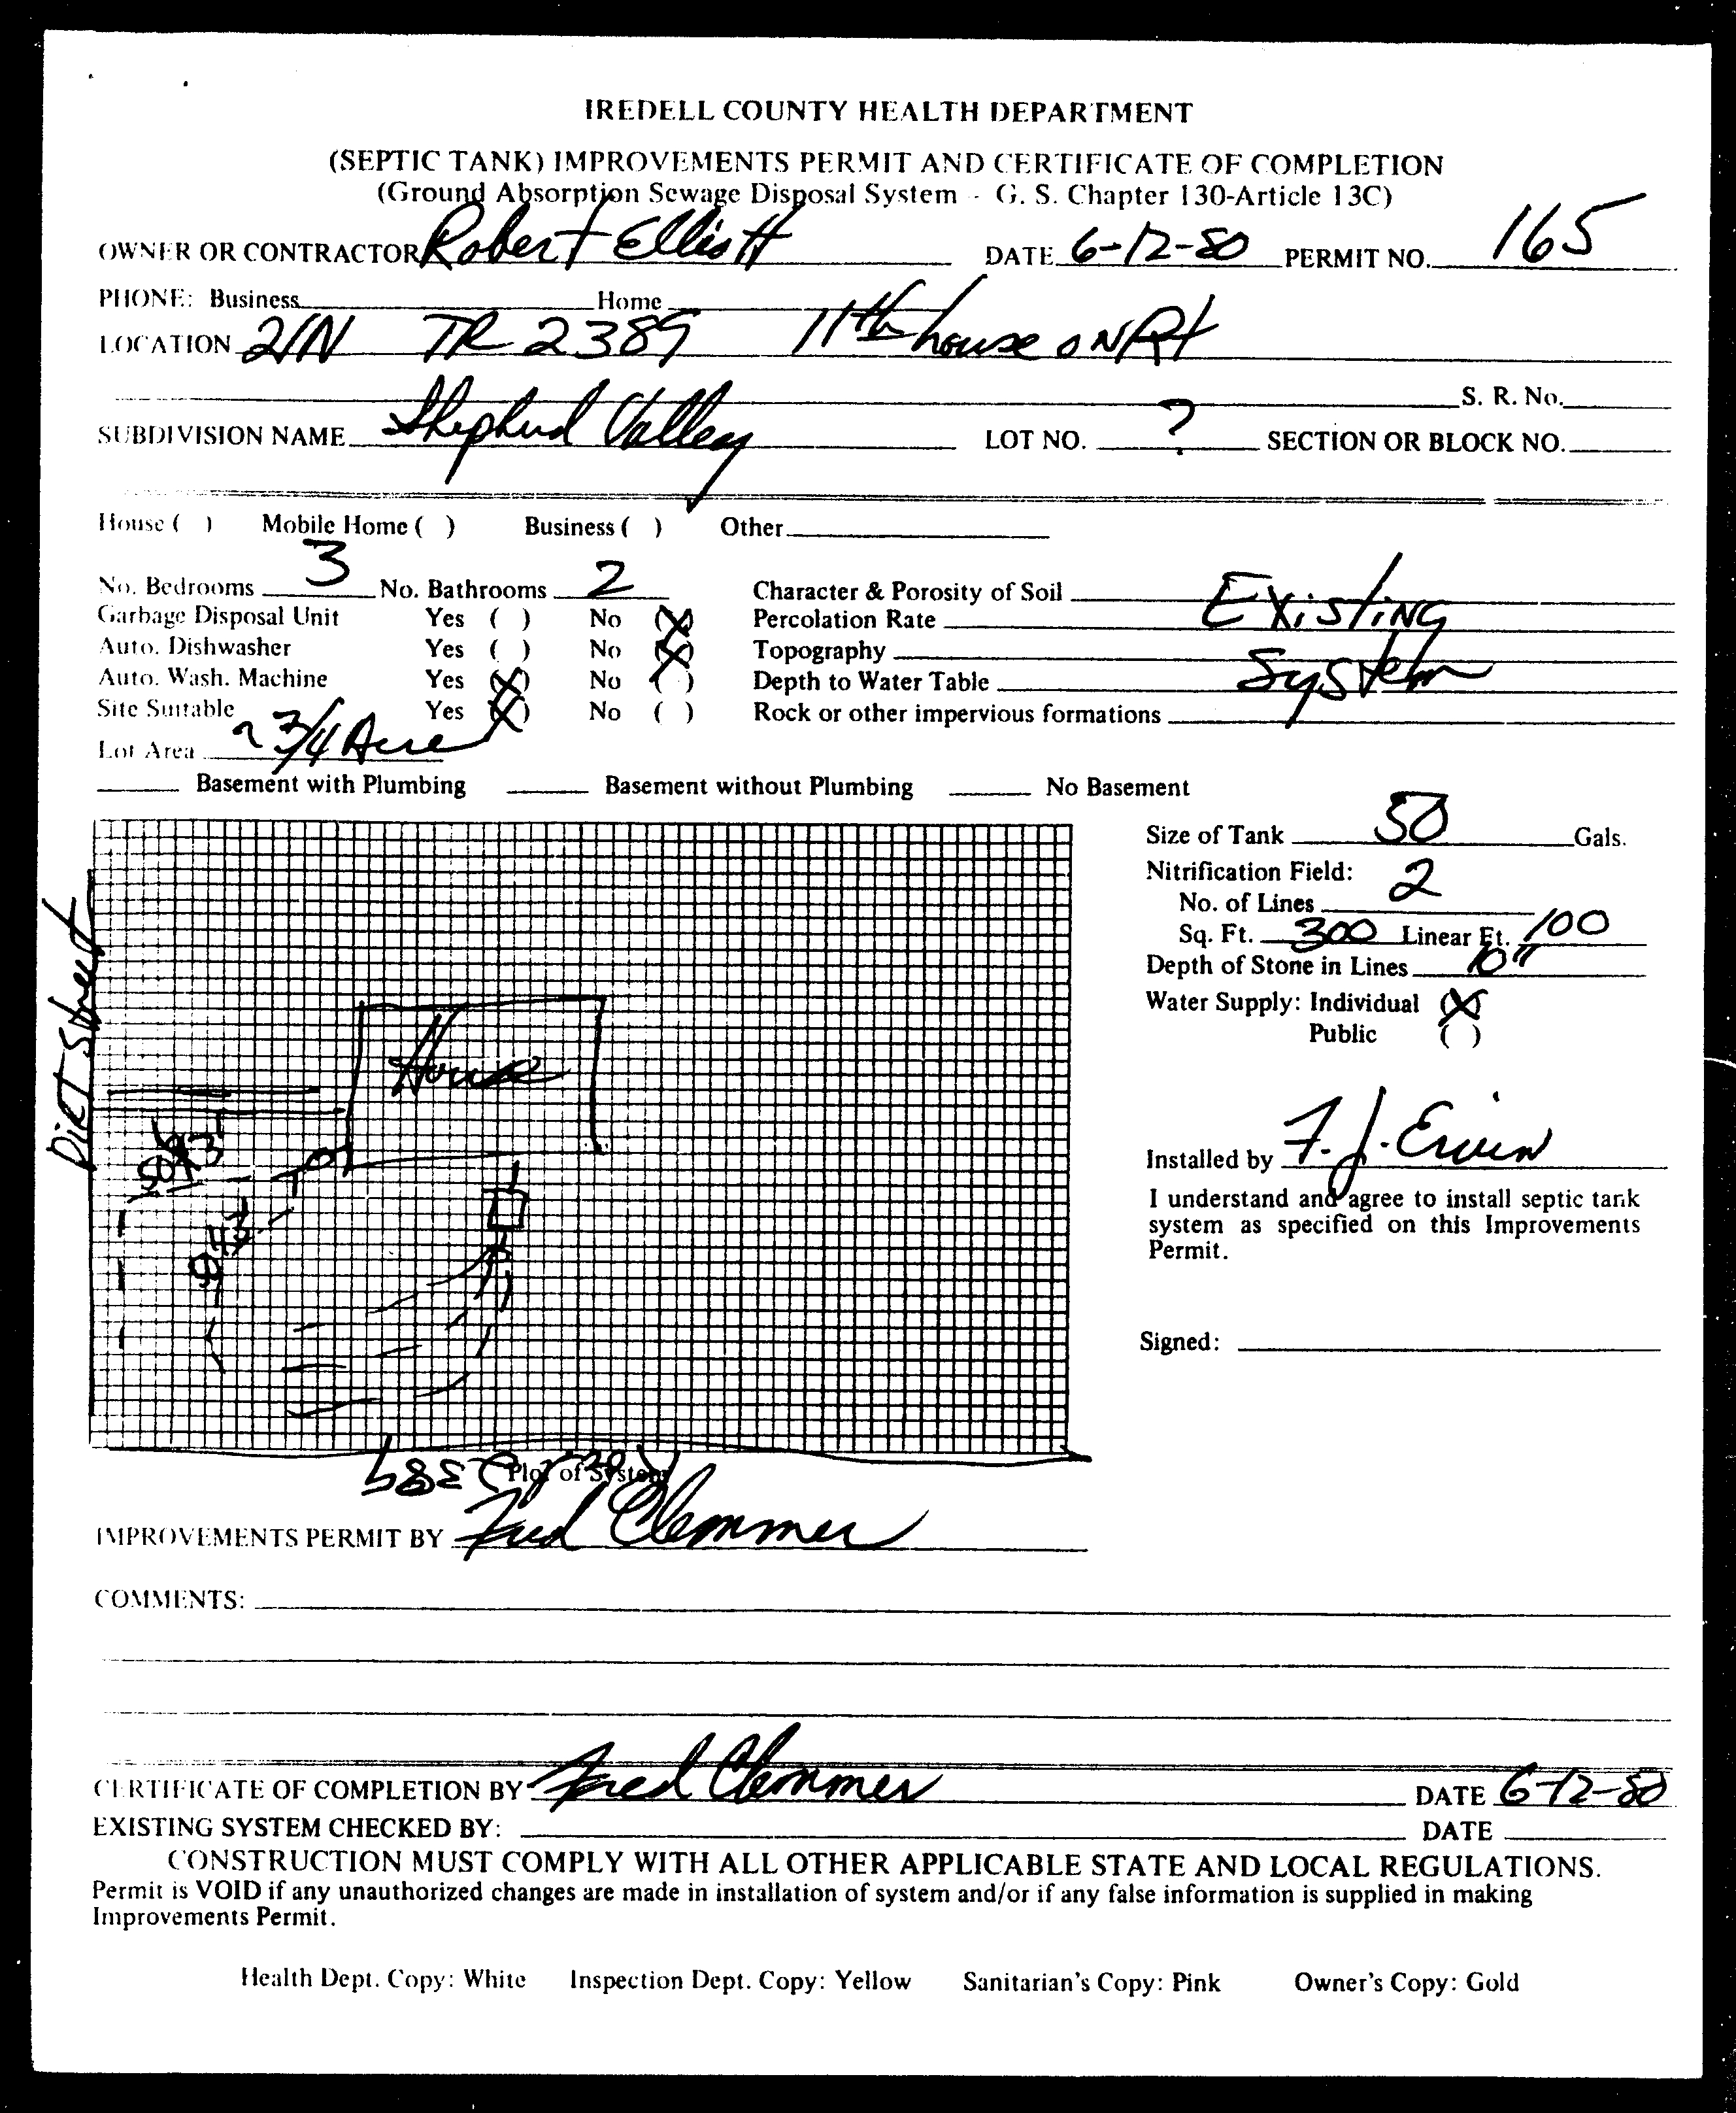 IREDELL COUNTY HEALTH DEPARTMENT
(SEPTIC TANK) IMPROVEMENTS PERMIT AND CERTIFICATE OF COMPLETION
(Ground Absorption Sewage Disposal System - G. S. Chapter 130-Article 13C)
OWNER OR CONTRACTOR Robert Elliott DATE 6-12-80 PERMIT NO. 165
PHONE: Business Home
LOCATION 21N TR 2389 11th house ON Rt
S. R. No.
SUBDIVISION NAME Shepherd Valley LOT NO. ? SECTION OR BLOCK NO.
House ( ) Mobile Home ( ) Business ( ) Other
No. Bedrooms 3 No. Bathrooms 2 Character & Porosity of Soil Existing
Garbage Disposal Unit Yes ( ) No (X) Percolation Rate
Auto. Dishwasher Yes ( ) No (X) Topography System
Auto. Wash. Machine Yes (X) No ( ) Depth to Water Table
Site Suitable Yes (X) No ( ) Rock or other impervious formations
Lot Area ~ 3/4 Acre
Basement with Plumbing Basement without Plumbing No Basement
Size of Tank 50 Gals.
Nitrification Field:
No. of Lines 2
Sq. Ft. 300 Linear Ft. 100
Depth of Stone in Lines 10"
Water Supply: Individual (X)
Public ( )
Dirt Street
House
50
43
Installed by F. J. Ervin
I understand and agree to install septic tank
system as specified on this Improvements
Permit.
Signed:
Plot of System
2389
IMPROVEMENTS PERMIT BY Fred Clemmer
COMMENTS:
CERTIFICATE OF COMPLETION BY Fred Clemmer DATE 6-12-80
EXISTING SYSTEM CHECKED BY: DATE
CONSTRUCTION MUST COMPLY WITH ALL OTHER APPLICABLE STATE AND LOCAL REGULATIONS.
Permit is VOID if any unauthorized changes are made in installation of system and/or if any false information is supplied in making
Improvements Permit.
Health Dept. Copy: White Inspection Dept. Copy: Yellow Sanitarian's Copy: Pink Owner's Copy: Gold